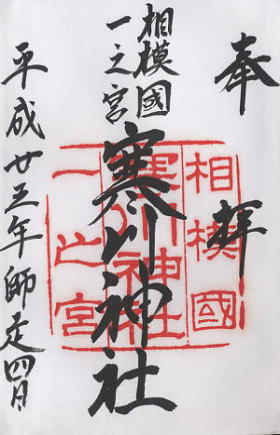 奉拝
相模國
一之宮
寒川神社
平成廿五年師走四日
相模國
寒川神社
一之宮